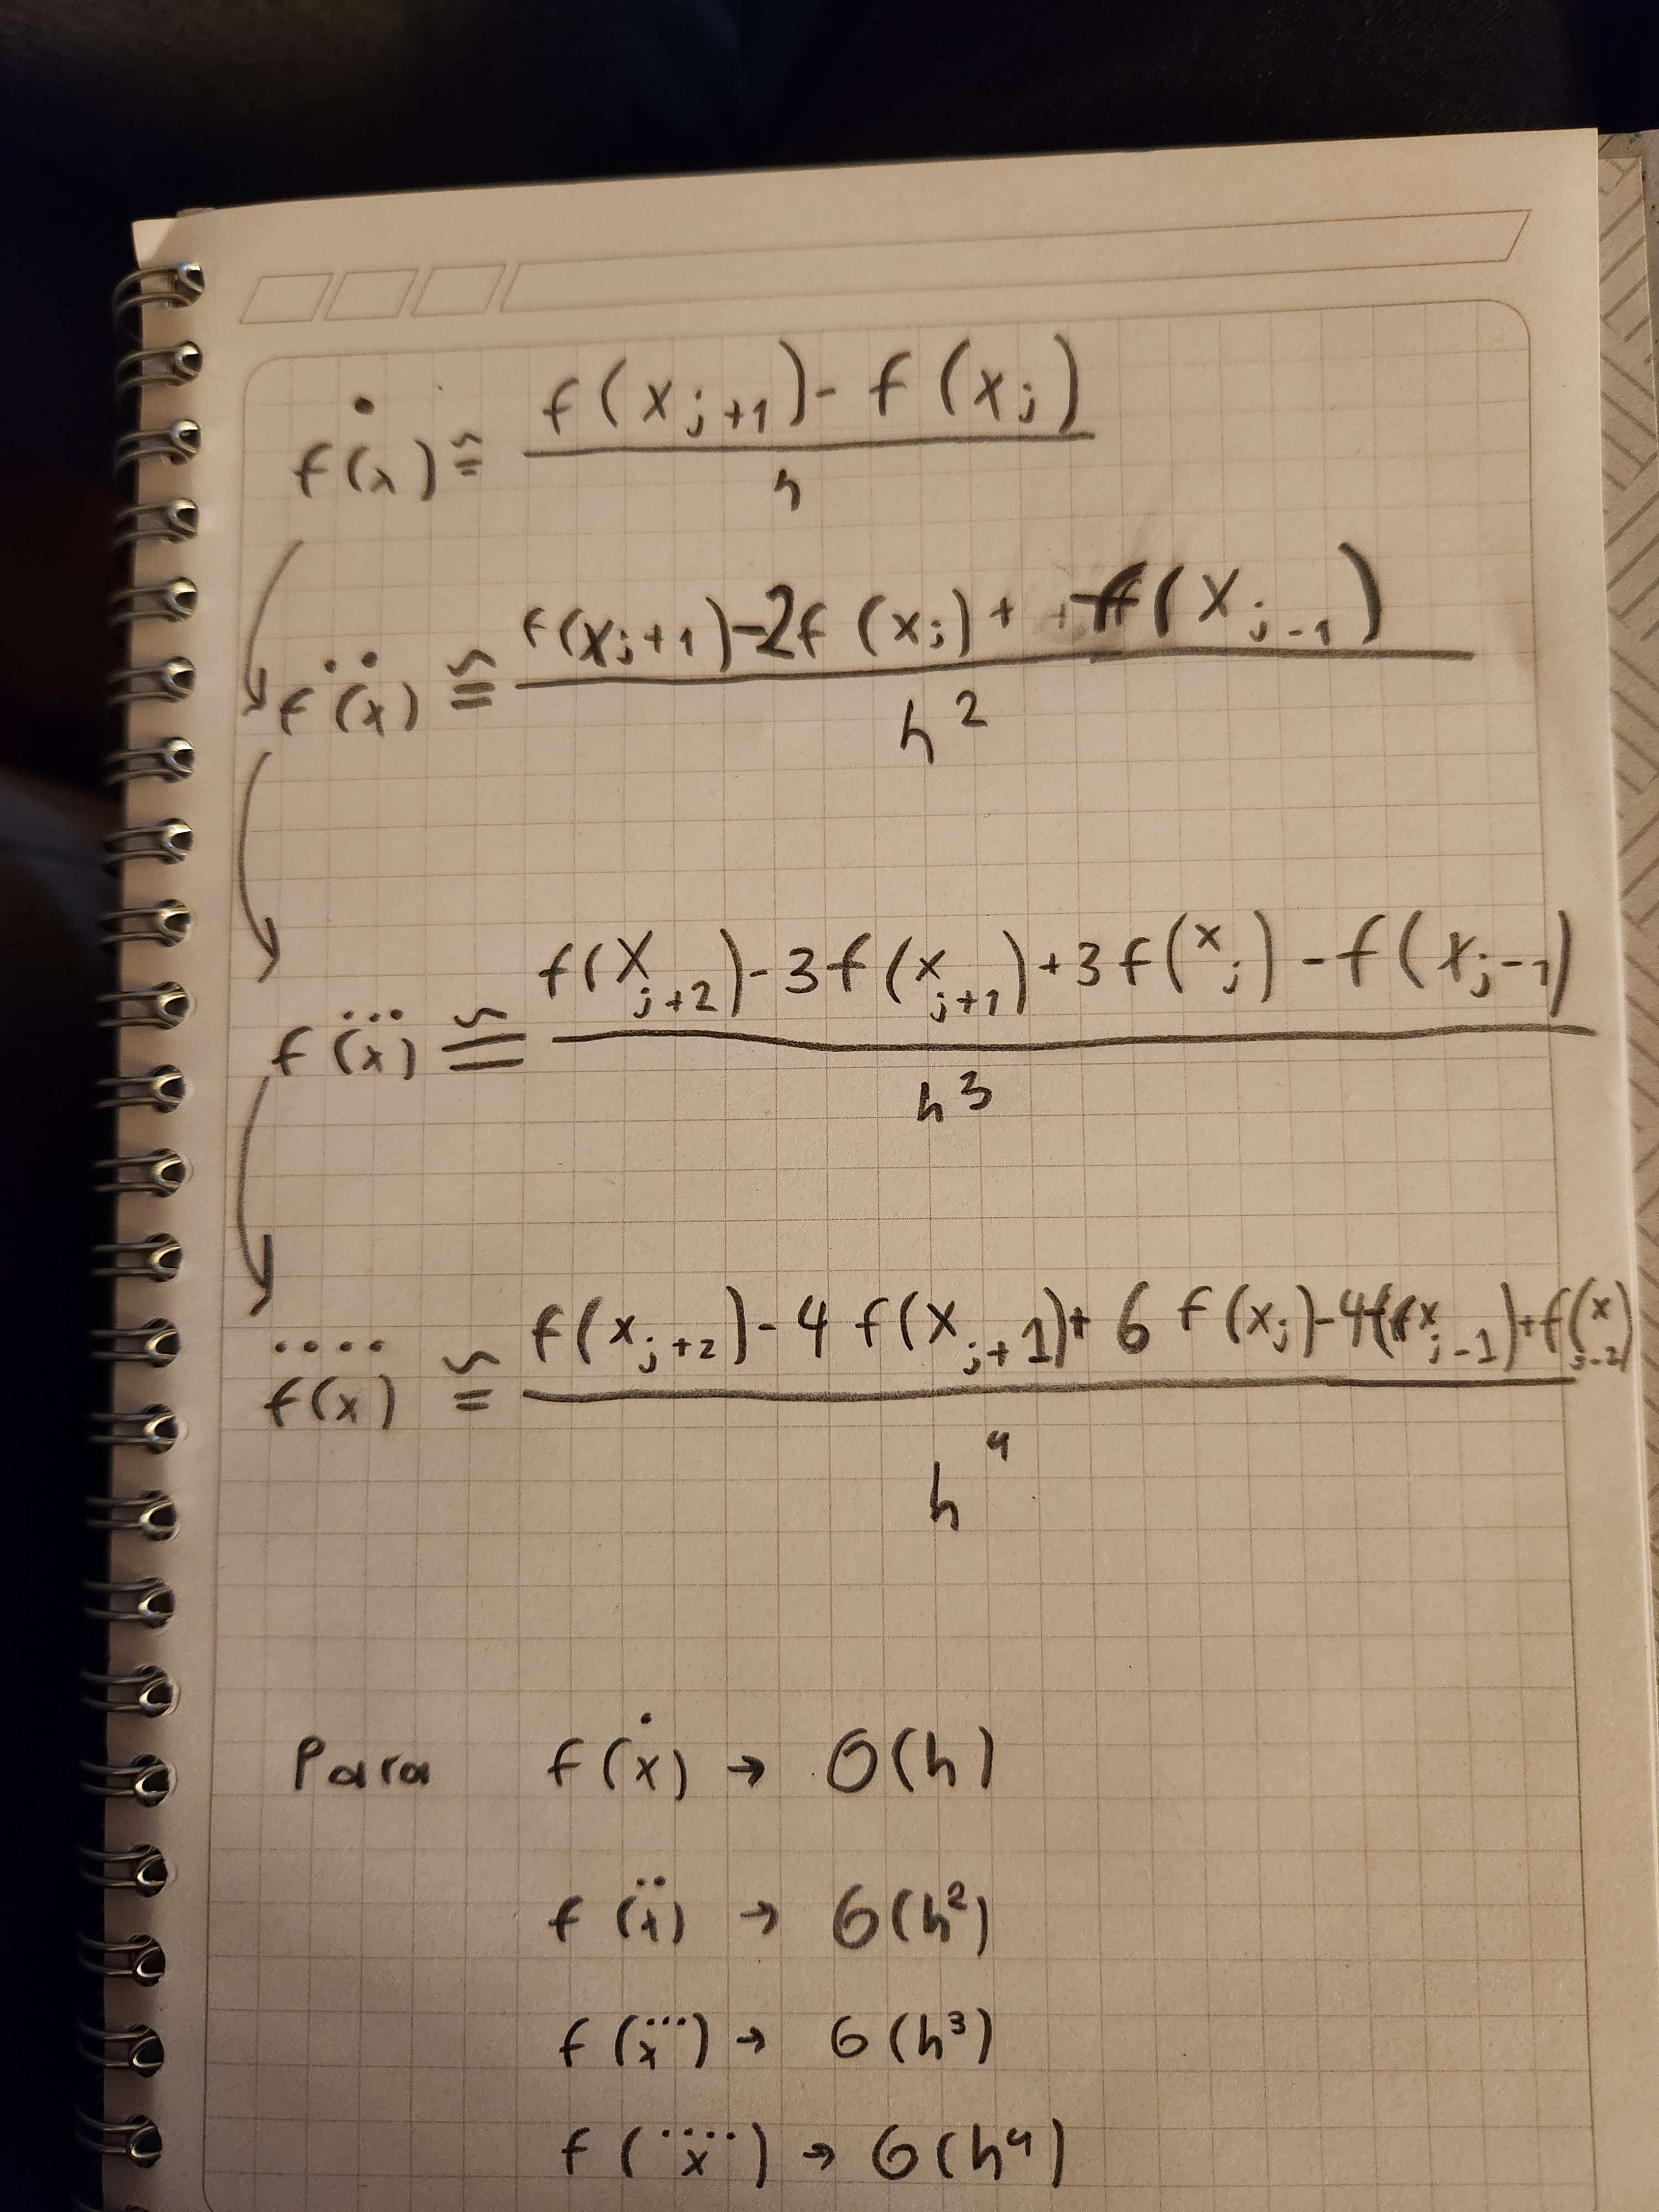 ḟ(x) ≅ f(xⱼ₊₁) - f(xⱼ) / h
f̈(x) ≅ f(xⱼ₊₁) - 2f(xⱼ) + f(xⱼ₋₁) / h²
f⃛(x) ≅ f(xⱼ₊₂) - 3f(xⱼ₊₁) + 3f(xⱼ) - f(xⱼ₋₁) / h³
f⃜(x) ≅ f(xⱼ₊₂) - 4f(xⱼ₊₁) + 6f(xⱼ) - 4f(xⱼ₋₁) + f(xⱼ₋₂) / h⁴
Para f(ẋ) → O(h)
f(ẍ) → O(h²)
f(x⃛) → O(h³)
f(x⃜) → O(h⁴)